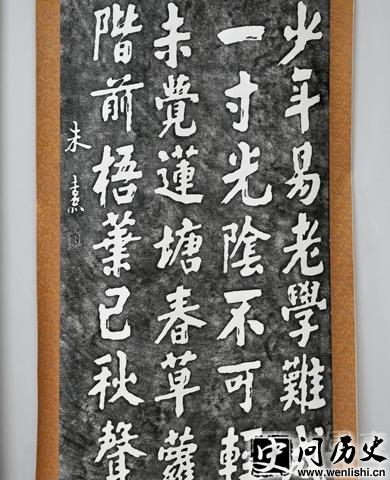 少年易老學難
一寸光陰不可輕
未覺蓮塘春草
階前梧葉已秋聲
朱熹
问历史
www.wenlishi.cn